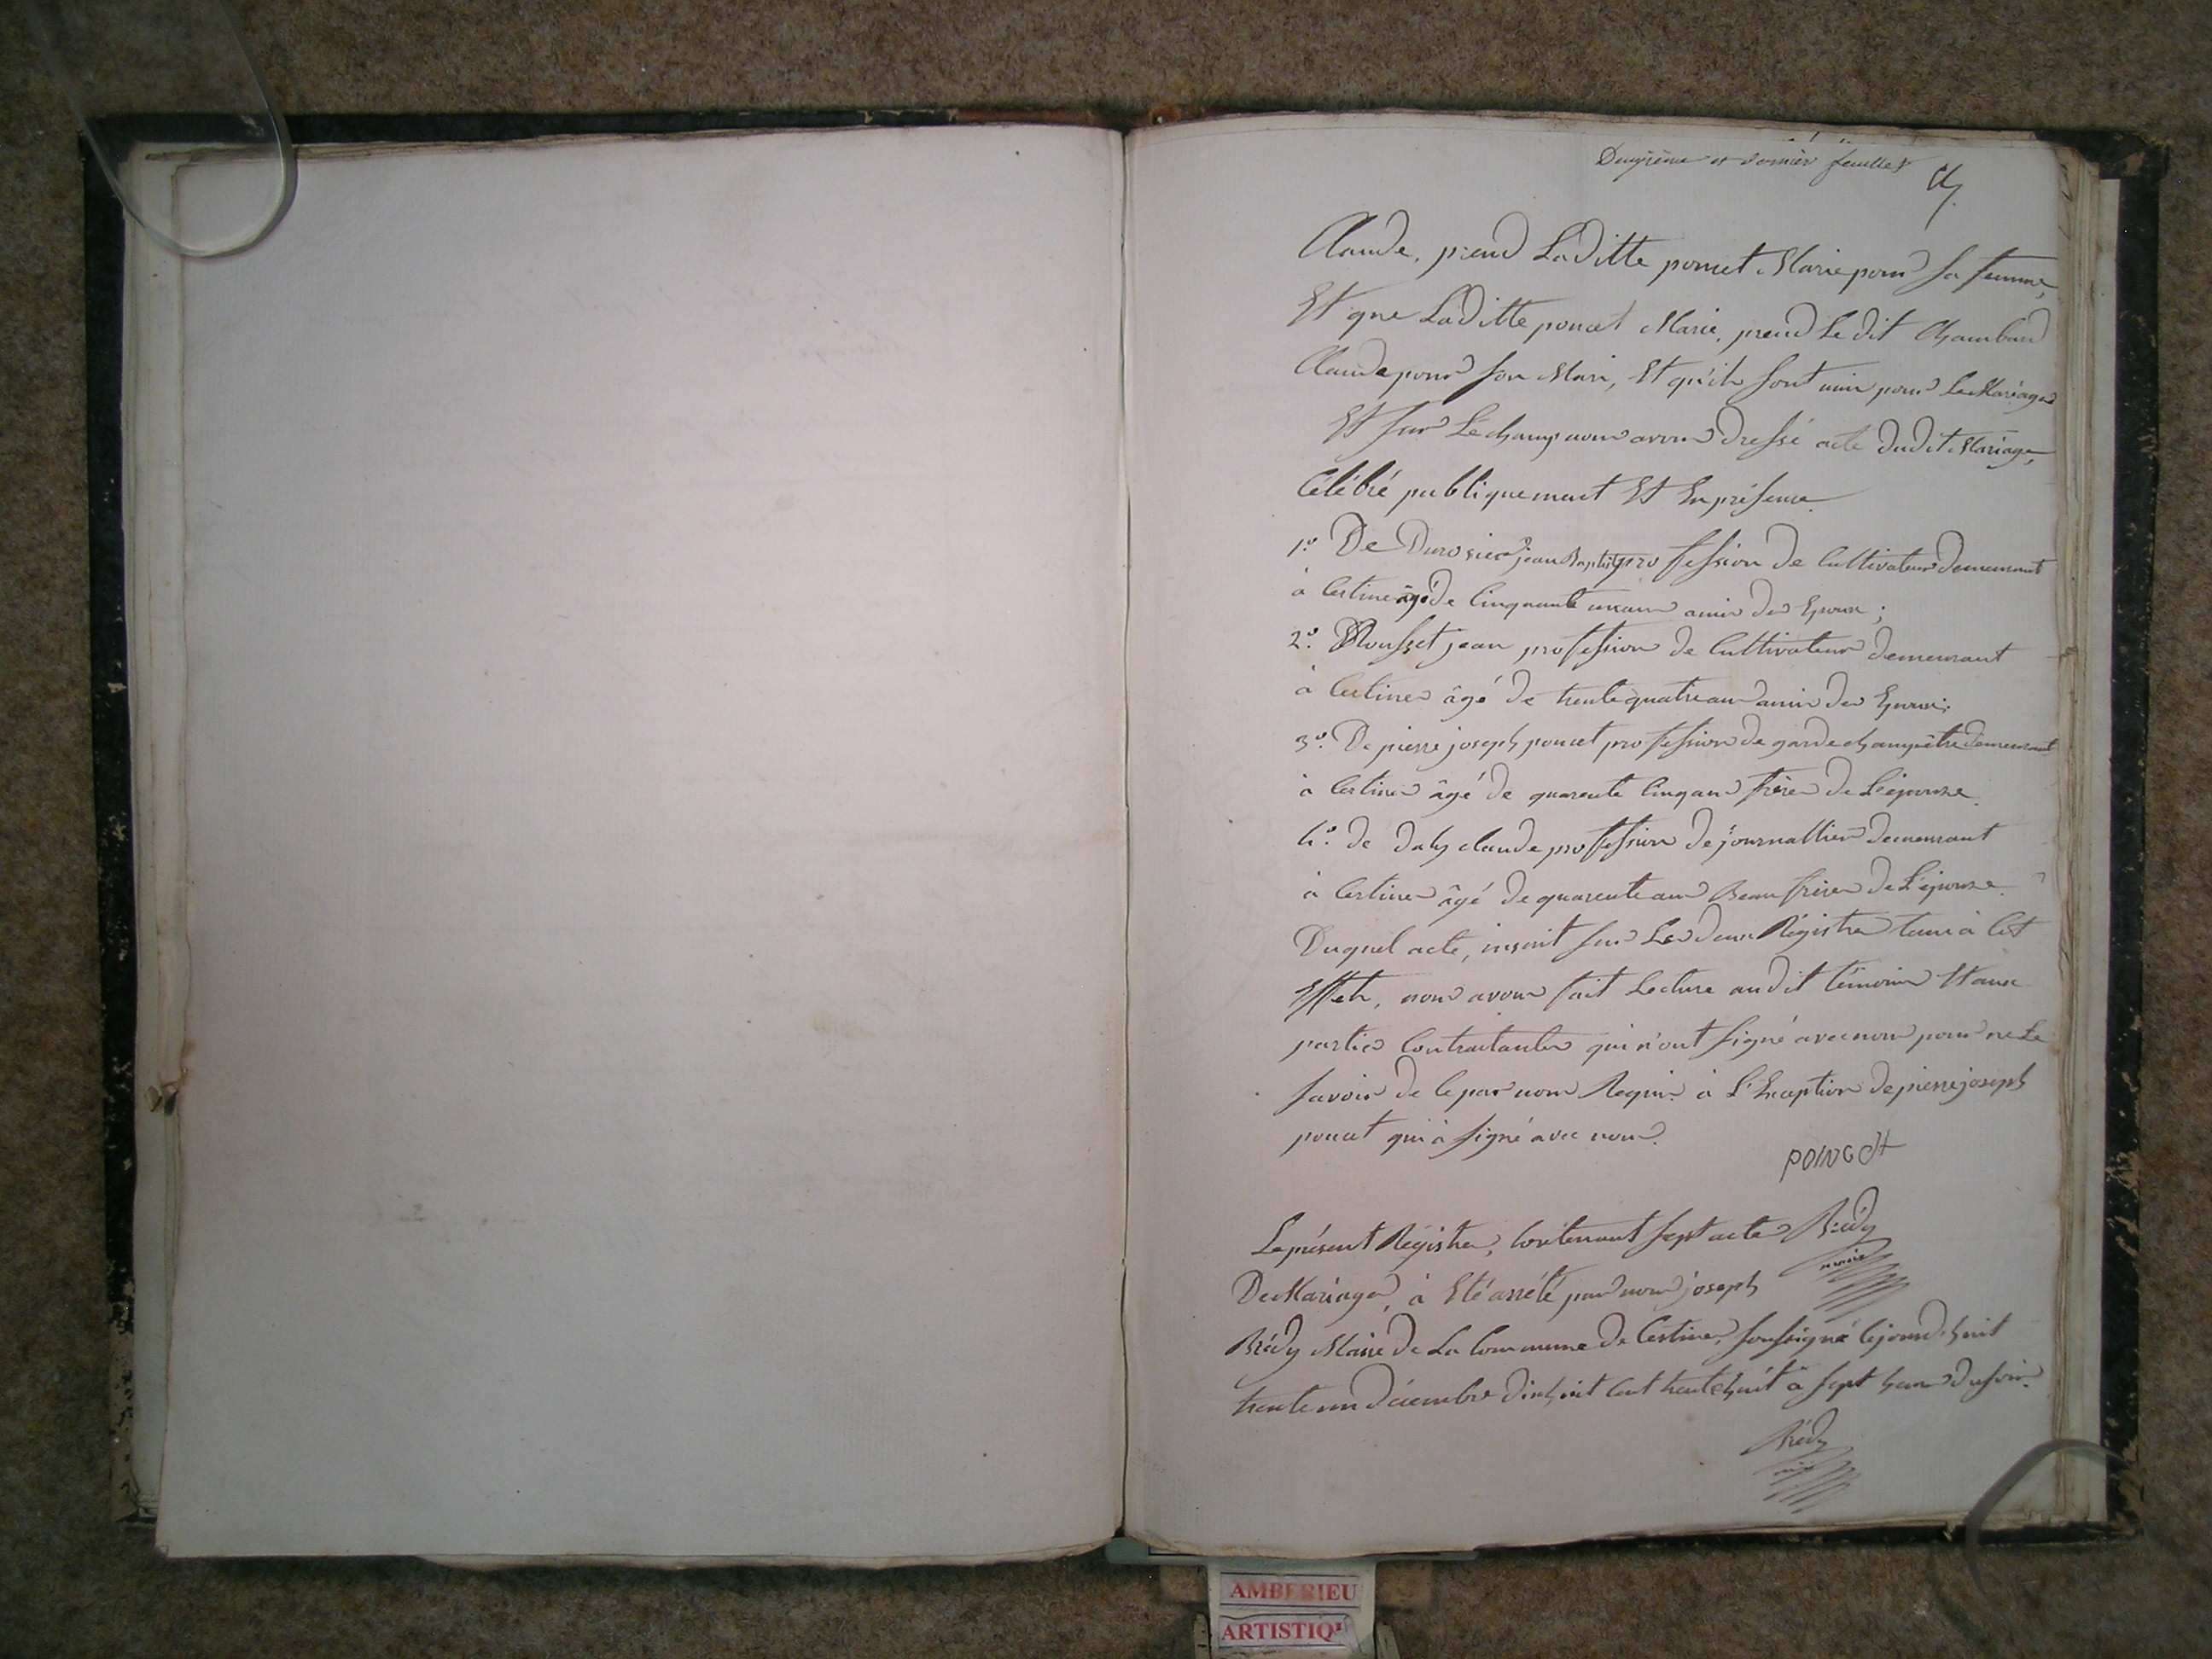 Deuxième et dernier feuillet
Claude, prend Laditte poncet Marie pour sa femme,
Et que Laditte poncet Marie, prend Le dit Chambard
Claude pour son Mari, Et qu'ils sont unis pour Le Mariage
Et sur Le champ nous avons Dressé acte dudit Mariage,
Célébré publiquement Et En présence
1.º De jean Baptiste profession De Cultivateur Demeurant
à Certines âgé De Cinquante un ans amis des Epoux ;
2.º Mousset jean profession de Cultivateur demeurant
à Certines âgé De trente quatre ans amis des Epoux ;
3.º De pierre joseph poncet profession De garde champêtre demeurant
à Certines âgé de quarente Cinq ans frère De L'épouse
4.º de claude profession De journallier Demeurant
à Certines âgé De quarente ans Beau frère De L'épouse
Duquel acte, inscrit sur Les deux Régistres tenus à Cet
Effets, nous avons fait Lecture audit témoins Et aux
parties Contractantes qui n'ont signé avec nous pour ne Le
savoir de Ce par nous Requis à L'Exception De pierre joseph
poncet qui à signé avec nous.
PONCET
Le présent Régistre, Contenant sept actes Brédy
maire
De Mariages, à Eté arrêté par nous joseph
Brédy Maire De La Commune De Certines, soussigné Cejourd'huit
trente un Décembre dixhuit Cent trente huit à sept heures Du soir.
Brédy
AMBERIEU
ARTISTIQ